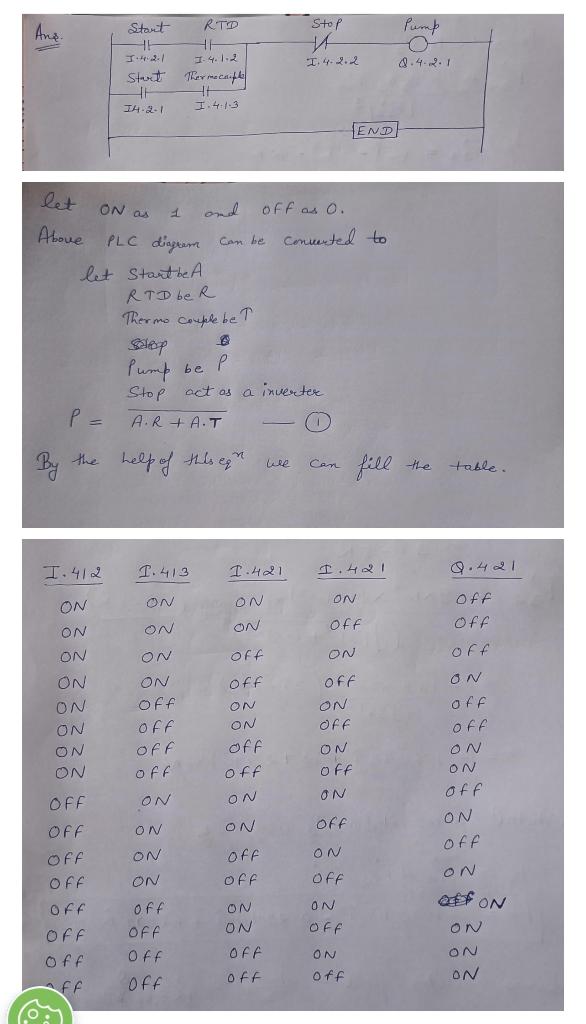 Ans.
Start RTD Stop Pump
I.4.2.1 I.4.1.2 I.4.2.2 Q.4.2.1
Start Thermocouple
I4.2.1 I.4.1.3
END
let ON as 1 and OFF as 0.
Above PLC diagram can be converted to
let Start be A
RTD be R
Thermo couple be T
Pump be P
Stop act as a inverter
P = A.R + A.T — 1
By the help of this eqn we can fill the table.
I.412 I.413 I.421 I.421 Q.421
ON ON ON ON OFF
ON ON ON OFF OFF
ON ON OFF ON OFF
ON ON OFF OFF ON
ON OFF ON ON OFF
ON OFF ON OFF OFF
ON OFF OFF ON ON
ON OFF OFF OFF ON
OFF ON ON ON OFF
OFF ON ON OFF ON
OFF ON OFF ON OFF
OFF ON OFF OFF ON
OFF OFF ON ON ON
OFF OFF ON OFF ON
OFF OFF OFF ON ON
OFF OFF OFF OFF ON